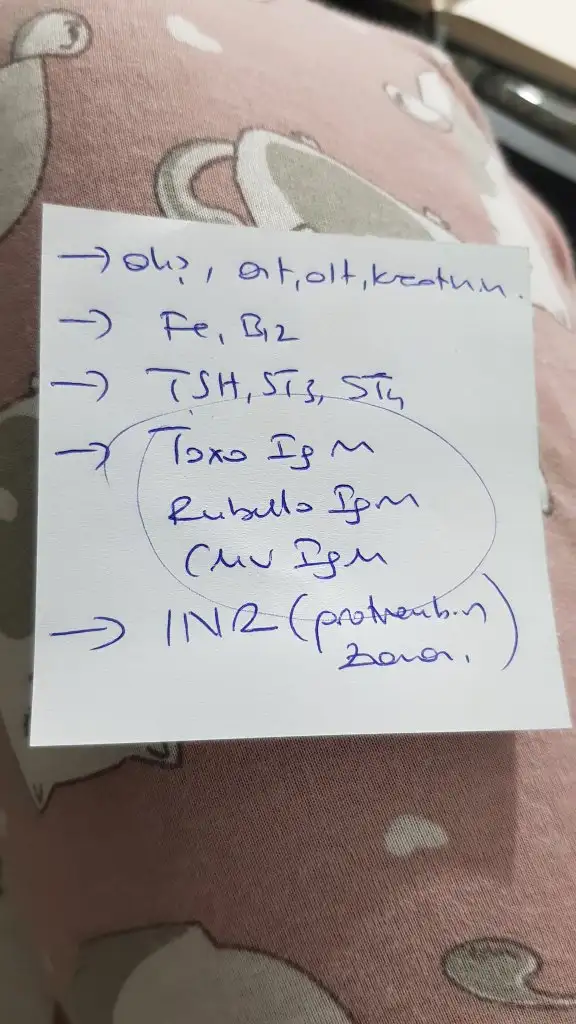 → akş, ast, alt, kreatinin.
→ Fe, B12
→ TSH, ST3, ST4
→ Toxo IgM
Rubella IgM
CMV IgM
→ INR (protrombin
zamanı.)